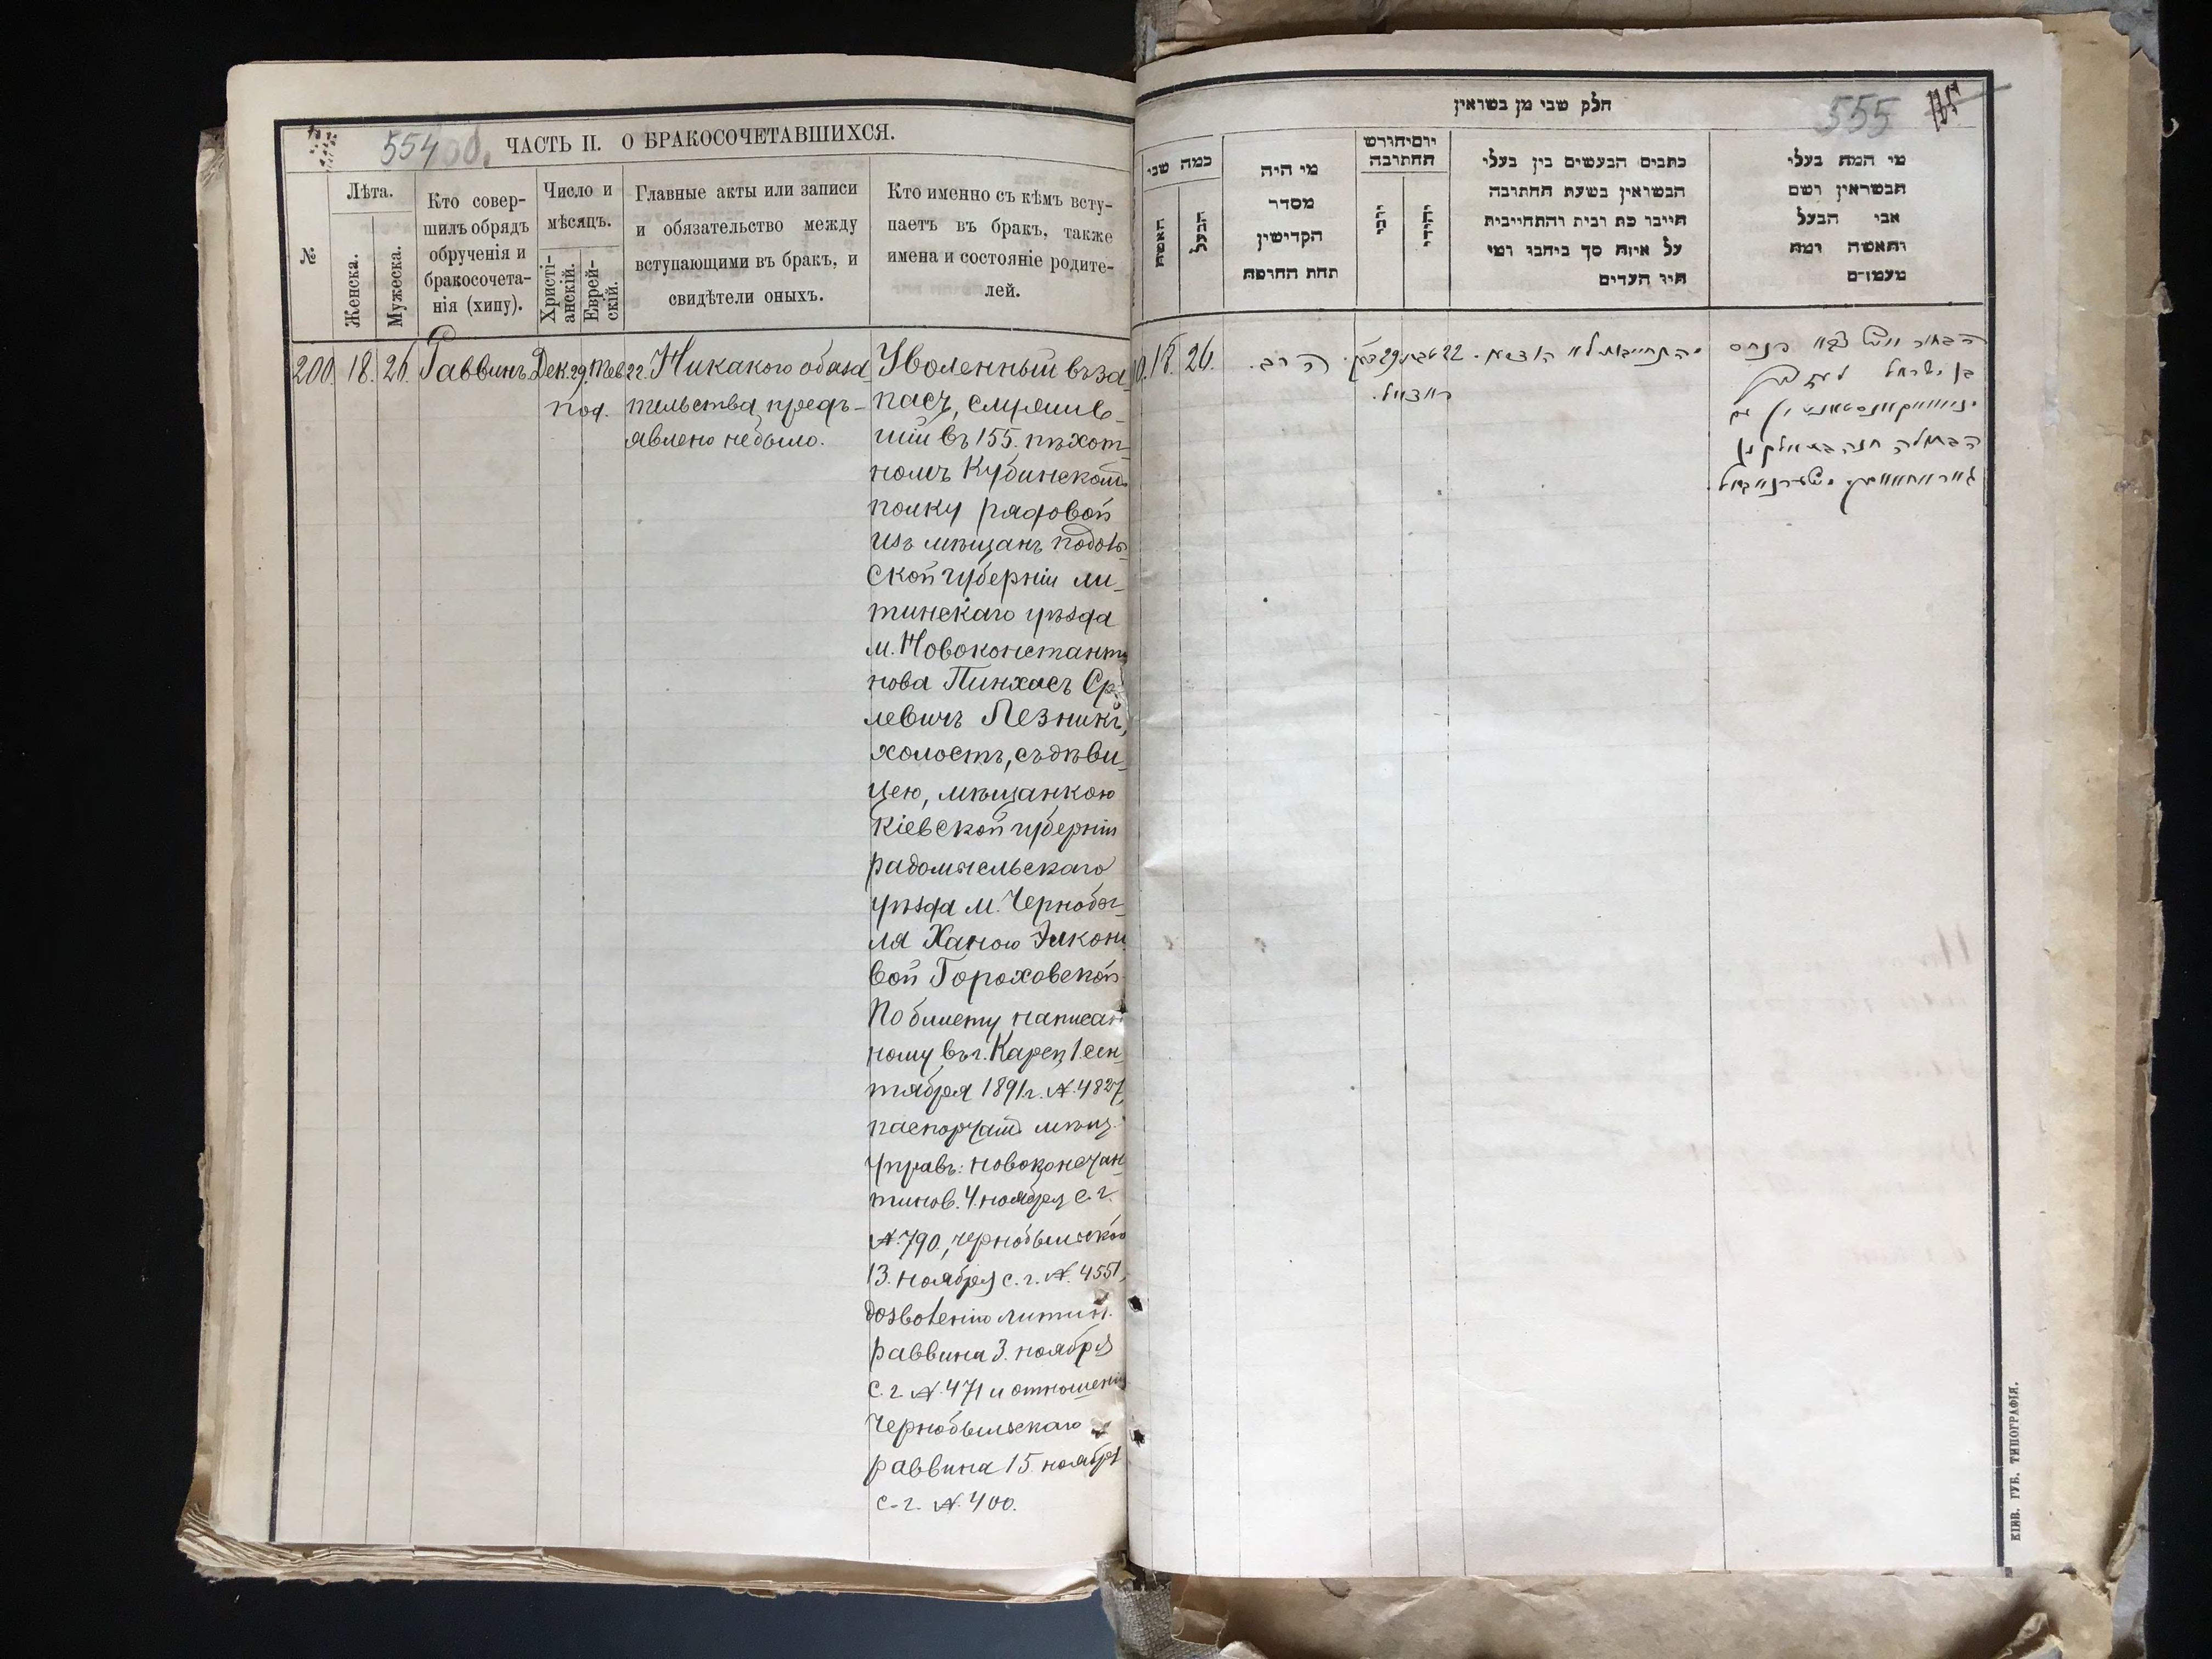 554
ЧАСТЬ II. О БРАКОСОЧЕТАВШИХСЯ.
№
Лѣта.
Женска.
Мужеска.
Кто совер-
шилъ обрядъ
обрученія и
бракосочета-
нія (хипу).
Число и
мѣсяцъ.
Христі-
анскій.
Еврей-
скій.
Главные акты или записи
и обязательство между
вступающими въ бракъ, и
свидѣтели оныхъ.
Кто именно съ кѣмъ всту-
паетъ въ бракъ, также
имена и состояніе родите-
лей.
200. 18. 26. Раввинъ. Дек. 29. Тев 22. Никакого обяза-
тельства предъ-
явлено небыло.
Уволенный въ за-
пасъ, служив-
шій въ 155. пѣхот-
номъ Кубинскомъ
полку рядовой
изъ мѣщанъ Подоль-
ской губерніи ли-
тинскаго уѣзда
м. Новоконстанти
нова Пинхасъ Ср
левичъ Лезникъ,
холостъ, съ дѣви-
цею, мѣщанкою
Кіевской губерніи
радомысльскаго
уѣзда м. Чернобы-
ля Ханою Элконо
вой Гороховской
По билету написан
ному въ г. Карсъ 1. сен
тября 1891 г. №. 4827
паспортамъ мѣщ.
управъ: новоконстан
тинов. 4. ноября с. г.
№. 790., чернобыльской
13. ноября с. г. №. 4551,
дозволенію литин.
раввина 3. ноября
с. г. №. 471 и отношенію
Чернобыльскаго
раввина 15. ноября
с. г. №. 400.
חלק שני מן נשואין
555
כמה שני
האשה
הבעל
מי היה
מסדר
הקדישין
תחת החופה
יום וחודש
החתונה
יוני
יהודי
כתבים הנעשים בין בעלי
הנשואין בשעת החתונה
חייבו כת ובית והתחייבית
על איזה סך ביחבו ומי
היו העדים
מי המה בעלי
הנשואין ושם
אבי הבעל
והאשה ומה
מעמדם
18. 26. הרב. 29 22
КІЕВ. ГУБ. ТИПОГРАФІЯ.